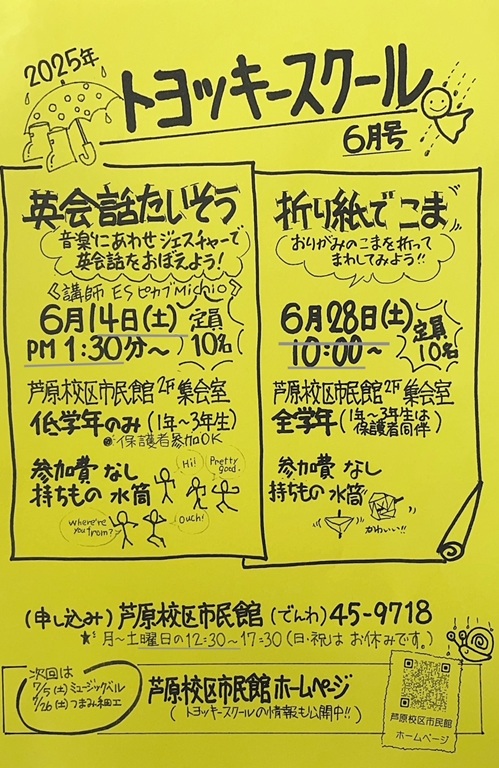 2025年
トヨッキースクール
6月号
英会話たいそう
音楽にあわせジェスチャーで
英会話をおぼえよう!
《講師 ESピカブMichio》
6月14日(土)
PM 1:30分～
定員
10名
芦原校区市民館2F集会室
低学年のみ(1年～3年生)
※保護者参加OK
参加費 なし
持ちもの 水筒
Hi!
Pretty
good.
Where're
you from?
Ouch!
折り紙で こま
おりがみのこまを折って
まわしてみよう!!
6月28日(土)
10:00～
定員
10名
芦原校区市民館2F集会室
全学年(1年～3年生は
保護者同伴)
参加費 なし
持ちもの 水筒
かわいい!!
(申し込み)芦原校区市民館(でんわ)45-9718
★月～土曜日の12:30～17:30(日・祝は お休みです。)
次回は
7/5(土)ミュージックベル
7/26(土)つまみ細工
芦原校区市民館ホームページ
(トヨッキースクールの情報も公開中!!)
芦原校区市民館
ホームページ